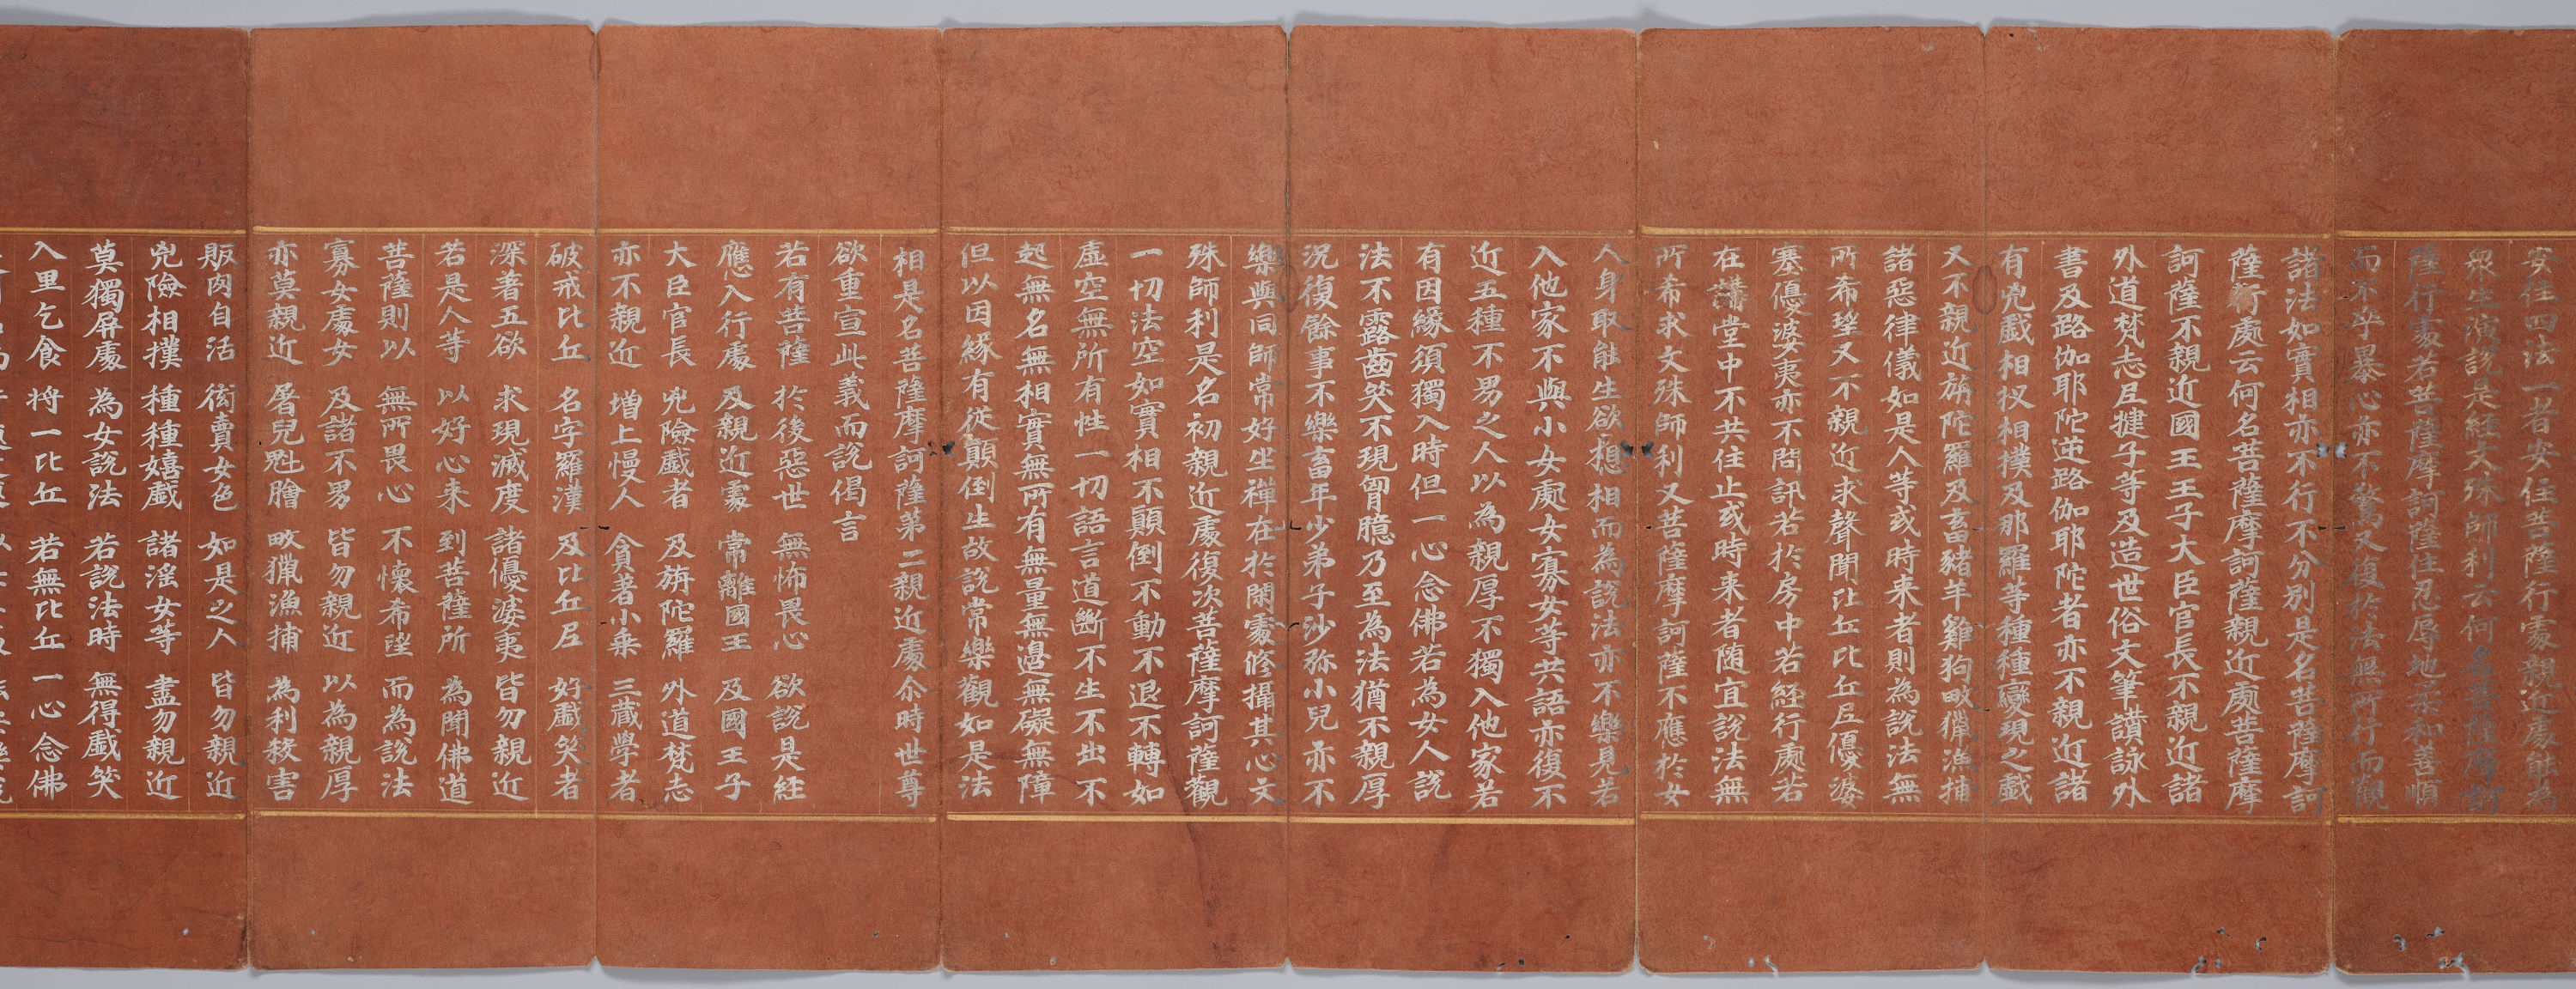 安住四法一者安住菩薩行處親近處能為
衆生演說是經文殊師利云何名菩薩摩訶
薩行處若菩薩摩訶薩住忍辱地柔和善順
而不卒暴心亦不驚又復於法無所行而觀
諸法如實相亦不行不分別是名菩薩摩訶
薩行處云何名菩薩摩訶薩親近處菩薩摩
訶薩不親近國王王子大臣官長不親近諸
外道梵志尼揵子等及造世俗文筆讃詠外
書及路伽耶陀逆路伽耶陀者亦不親近諸
有兇戲相扠相撲及那羅等種種變現之戲
又不親近旃陀羅及畜猪羊雞狗畋獵漁捕
諸惡律儀如是人等或時来者則為說法無
所希望又不親近求聲聞比丘比丘尼優婆
塞優婆夷亦不問訊若於房中若経行處若
在講堂中不共住止或時来者随宜說法無
所希求文殊師利又菩薩摩訶薩不應於女
人身取能生欲想相而為說法亦不樂見若
入他家不與小女處女寡女等共語亦復不
近五種不男之人以為親厚不獨入他家若
有因緣須獨入時但一心念佛若為女人說
法不露齒笑不現胷臆乃至為法猶不親厚
況復餘事不樂畜年少弟子沙弥小兒亦不
樂與同師常好坐禪在於閑處修攝其心文
殊師利是名初親近處復次菩薩摩訶薩觀
一切法空如實相不顛倒不動不退不轉如
虛空無所有性一切語言道斷不生不出不
起無名無相實無所有無量無邊無礙無障
但以因緣有從顛倒生故說常樂觀如是法
相是名菩薩摩訶薩第二親近處尒時世尊
欲重宣此義而說偈言
若有菩薩 於後惡世 無怖畏心 欲說是経
應入行處 及親近處 常離國王 及國王子
大臣官長 兇險戲者 及旃陀羅 外道梵志
亦不親近 增上慢人 貪著小乗 三蔵學者
破戒比丘 名字羅漢 及比丘尼 好戲笑者
深著五欲 求現滅度 諸優婆夷 皆勿親近
若是人等 以好心来 到菩薩所 為聞佛道
菩薩則以 無所畏心 不懷希望 而為說法
寡女處女 及諸不男 皆勿親近 以為親厚
亦莫親近 屠兒魁膾 畋獵漁捕 為利殺害
販肉自活 衒賣女色 如是之人 皆勿親近
兇險相撲 種種嬉戲 諸淫女等 盡勿親近
莫獨屏處 為女說法 若說法時 無得戲笑
入里乞食 将一比丘 若無比丘 一心念佛